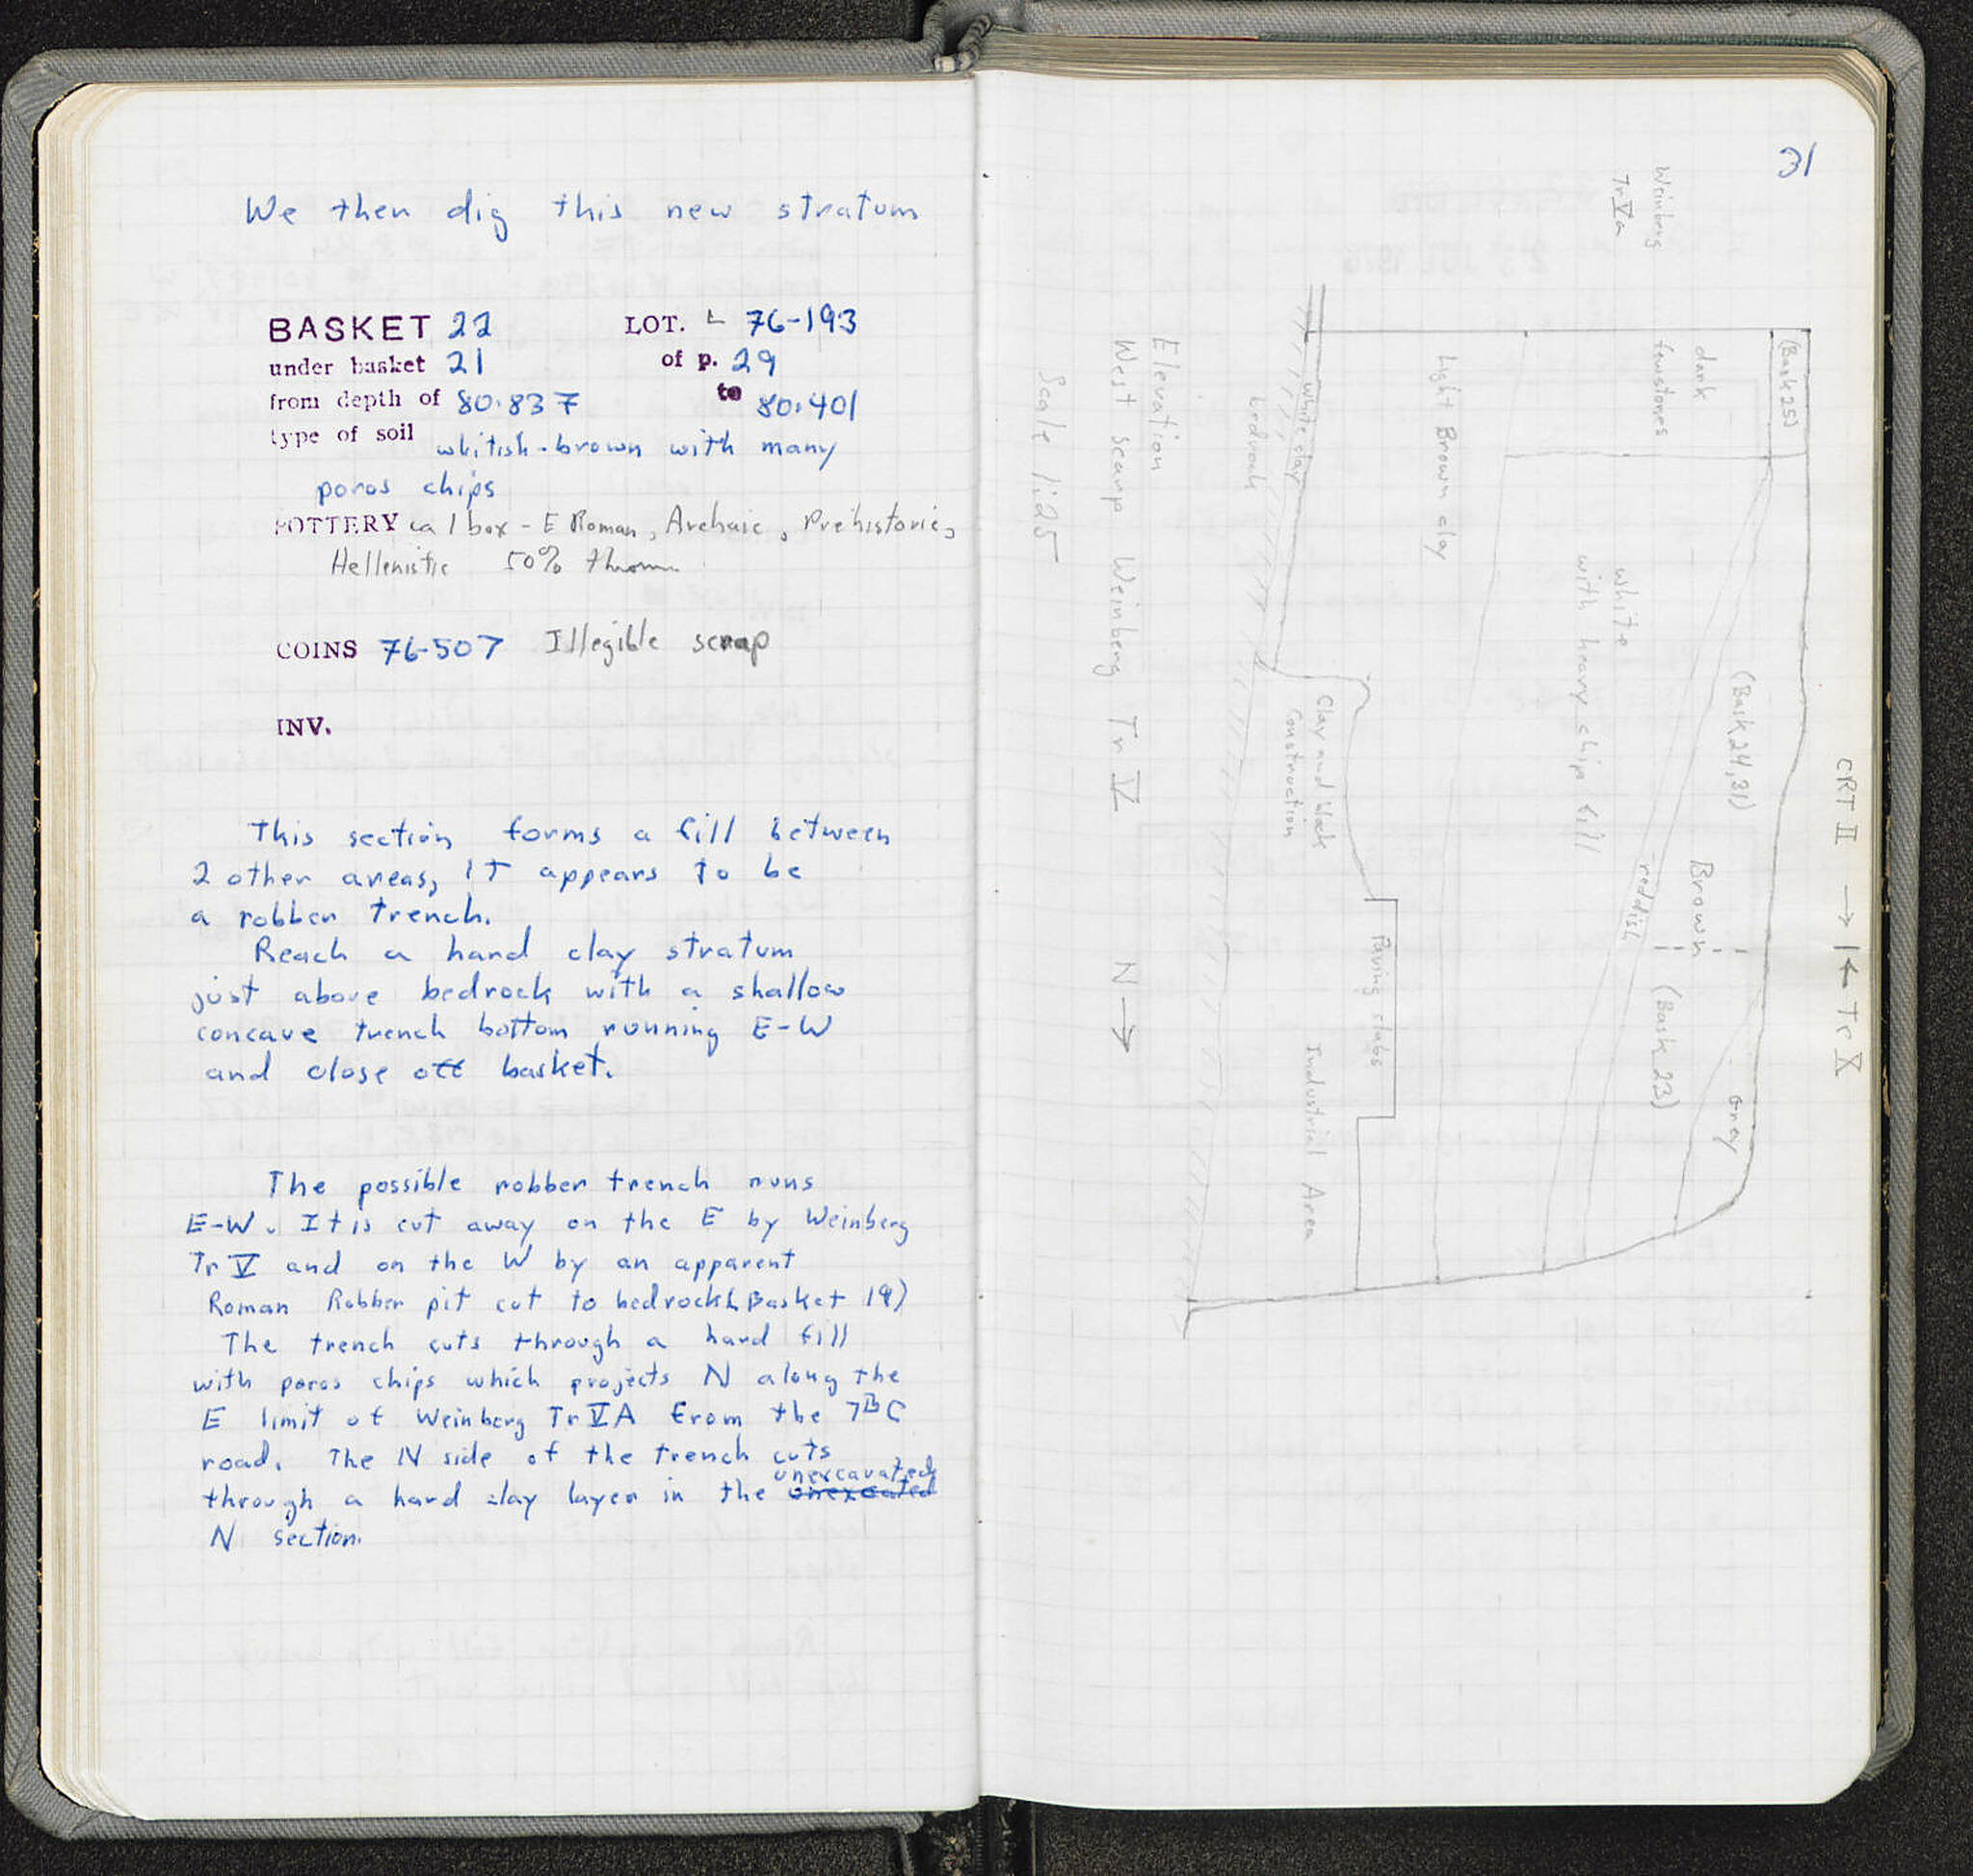 We then dig this new stratum
BASKET 22 LOT. L 76-193
under basket 21 of p. 29
from depth of 80.837 to 80.401
type of soil whitish-brown with many
poros chips
POTTERY ca 1 box - E Roman, Archaic, Prehistoric,
Hellenistic 50% thrown
COINS 76-507 Illegible scrap
INV.
This section forms a fill between
2 other areas, IT appears to be
a robber trench.
Reach a hard clay stratum
just above bedrock with a shallow
concave trench bottom running E-W
and close off basket.
The possible robber trench runs
E-W. It is cut away on the E by Weinberg
Tr V and on the W by an apparent
Roman Robber pit cut to bedrock (Basket 19)
The trench cuts through a hard fill
with poros chips which projects N along the
E limit of Weinberg Tr VA from the 7BC
road. The N side of the trench cuts
through a hard clay layer in the unexcavated
N section.
31
CRT II → | ← Tr X
Weinberg
Tr V a
(Bask 25)
dark
few stones
(Bask 24, 31)
Brown
Grey
(Bask 23)
reddish
white
with heavy chip fill
Light Brown clay
white clay
bedrock
Clay and block
Construction
Paving slabs
Industrial Area
Elevation
West scarp Weinberg Tr V N →
Scale 1:25